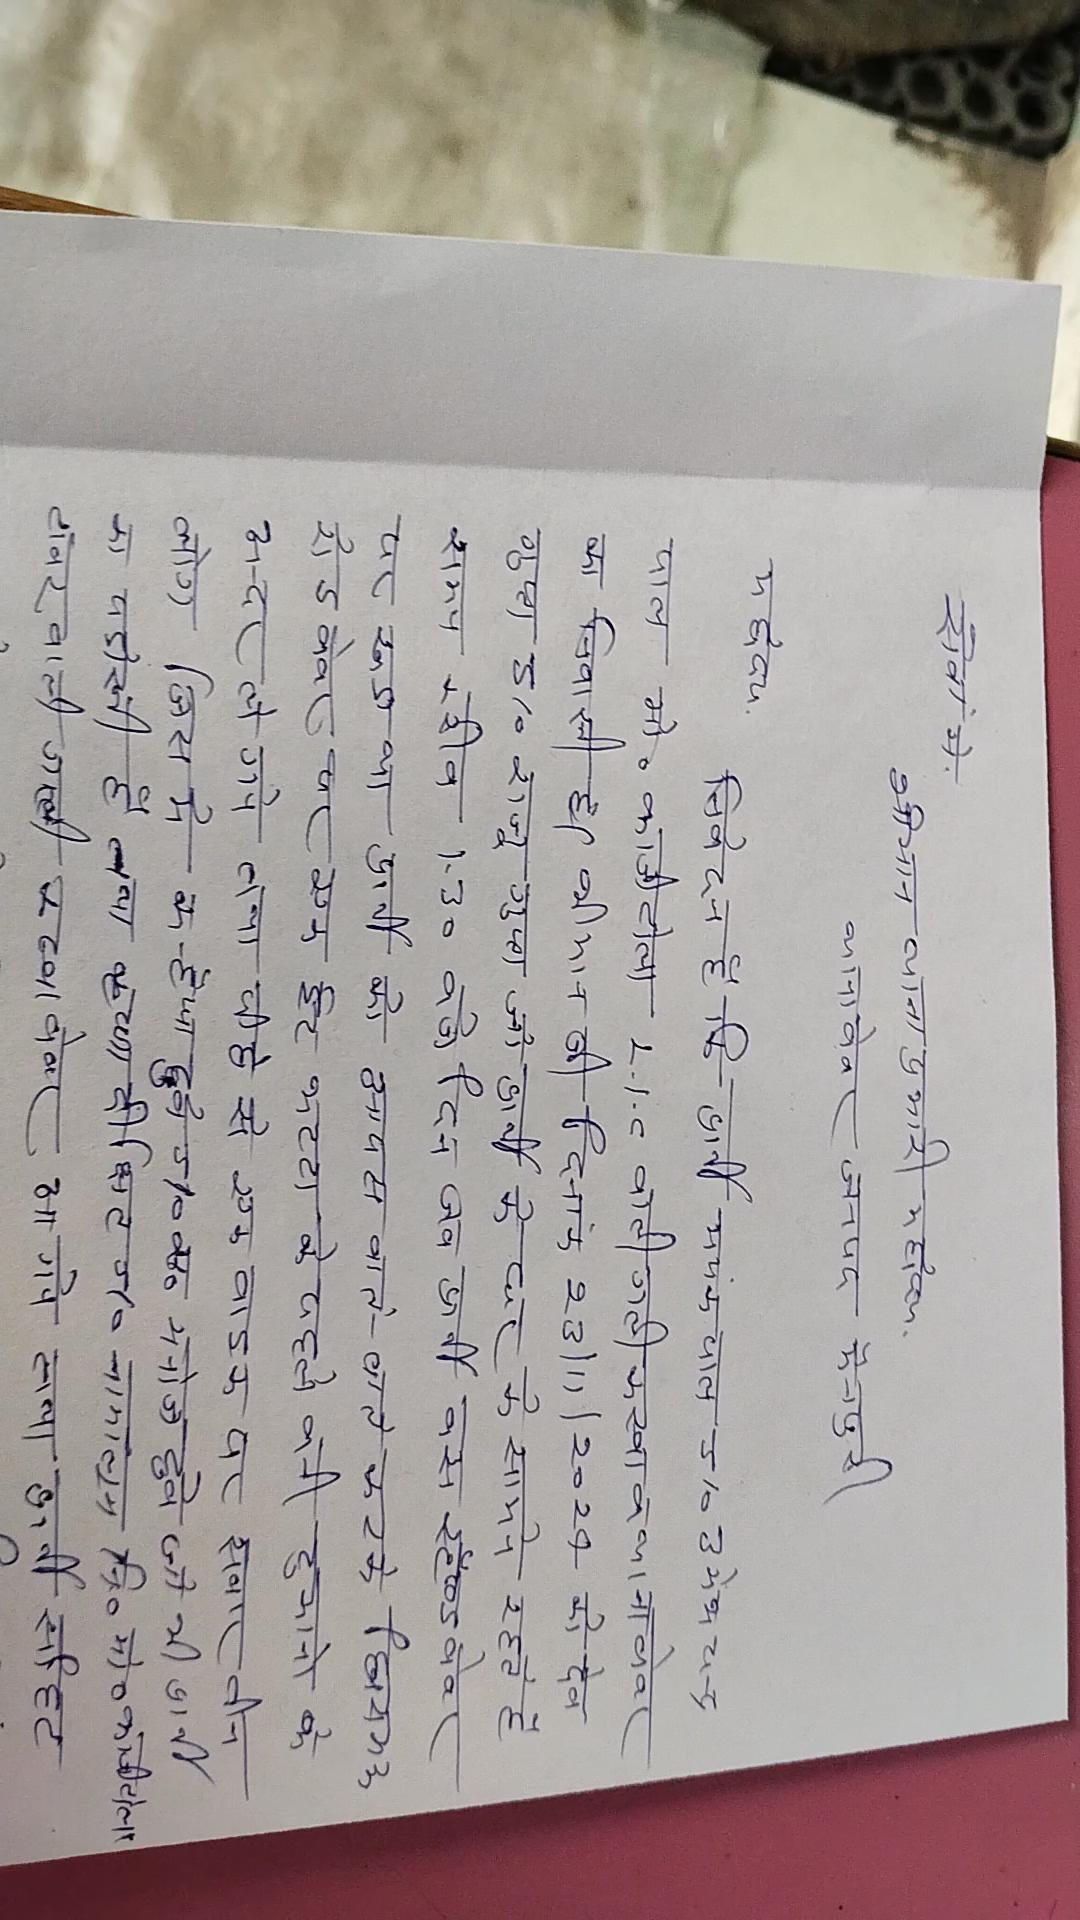 सेवा में.
श्रीमान थाना प्रभारी महोदय.
थाना बेवर जनपद मैनपुरी
महोदय.
निवेदन है कि प्रार्थी मयंक पाल S/० उमेश चन्द्र
पाल मो० काजीटोला L.I.C वाली गली कस्बा व थाना बेवर
का निवासी है। श्रीमान जी दिनांक 23/11/2024 को देव
गुप्ता S/० राजू गुप्ता जो प्रार्थी के घर के सामने रहते हैं
समय करीब 1.30 बजे दिन जब प्रार्थी बस स्टैण्ड बेवर
पर खड़ा था प्रार्थी को आवश्यक बात करके छिबरामऊ
रोड बेवर पर एक ईंट भट्टा के पहले बनी दुकानो के
अन्दर ले गये तथा पीछे से एक बाइक पर सवार तीन
लोग जिस में कन्हैया दुबे S/० मनोज दुबे जो भी प्रार्थी
का पडोसी है तथा कृष्णा दीक्षित S/० नामालूम नि० मो० काजीटोला
टॉवर वाली गली कस्बा बेवर आ गये तथा प्रार्थी सहित